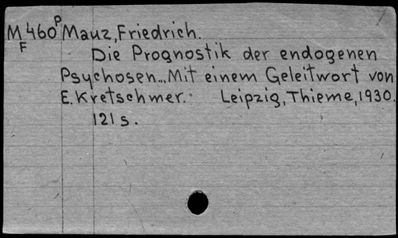 M460P Mauz, Friedrich.
F Die Prognostik der endogenen
Psychosen... Mit einem Geleitwort von
E. Kretschmer. Leipzig, Thieme, 1930.
121 s.